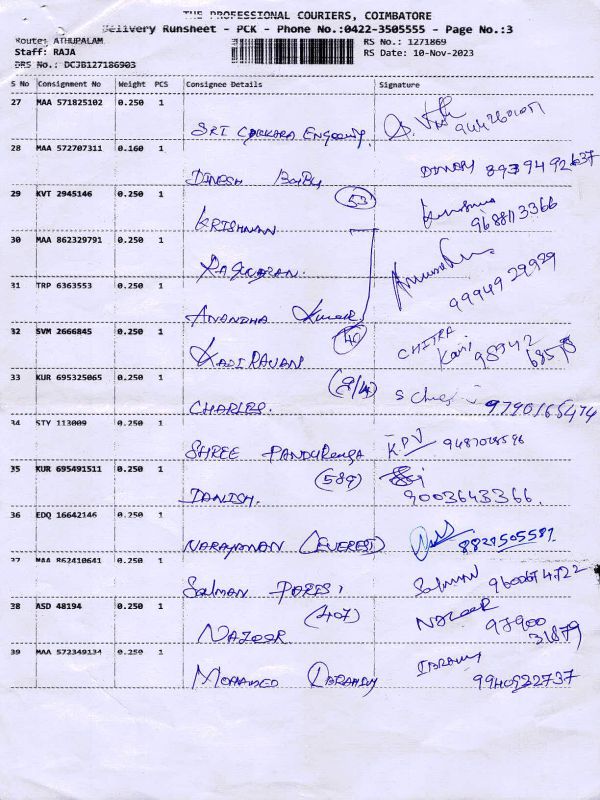 THE PROFESSIONAL COURIERS, COIMBATORE
Delivery Runsheet - PCK - Phone No.:0422-3505555 - Page No.:3
Route: ATHUPALAM
Staff: RAJA
DRS No.: DCJB127186903
RS No.: 1271869
RS Date: 10-Nov-2023
S No Consignment No Weight PCS Consignee Details Signature
27 MAA 571825102 0.250 1
SRI
28 MAA 572707311 0.160 1
DINESH BABU DINESH 8939492637
29 KVT 2945146 0.250 1 53
KRISHNAN 9688113366
30 MAA 862329791 0.250 1
31 TRP 6363553 0.250 1
ANANDHA KUMAR 99949 29939
32 SVM 2666845 0.250 1 40
KADIRAVAN CHITRA
33 KUR 695325065 0.250 1 (2/4)
CHARLES. 9790165474
34 STY 113009 0.250 1
SHREE PANDURANGA KPV
35 KUR 695491511 0.250 1 (589)
DANISH. 9003643366.
36 EDQ 16642146 0.250 1
NARAYANAN (EVEREST)
37 MAA 862410641 0.250 1
SALMAN PARIS Salman
38 ASD 48194 0.250 1 (407)
NAZEER NAZEER 97900 31879
39 MAA 572349134 0.250 1
MOHAMED IBRAHIM 9940932737